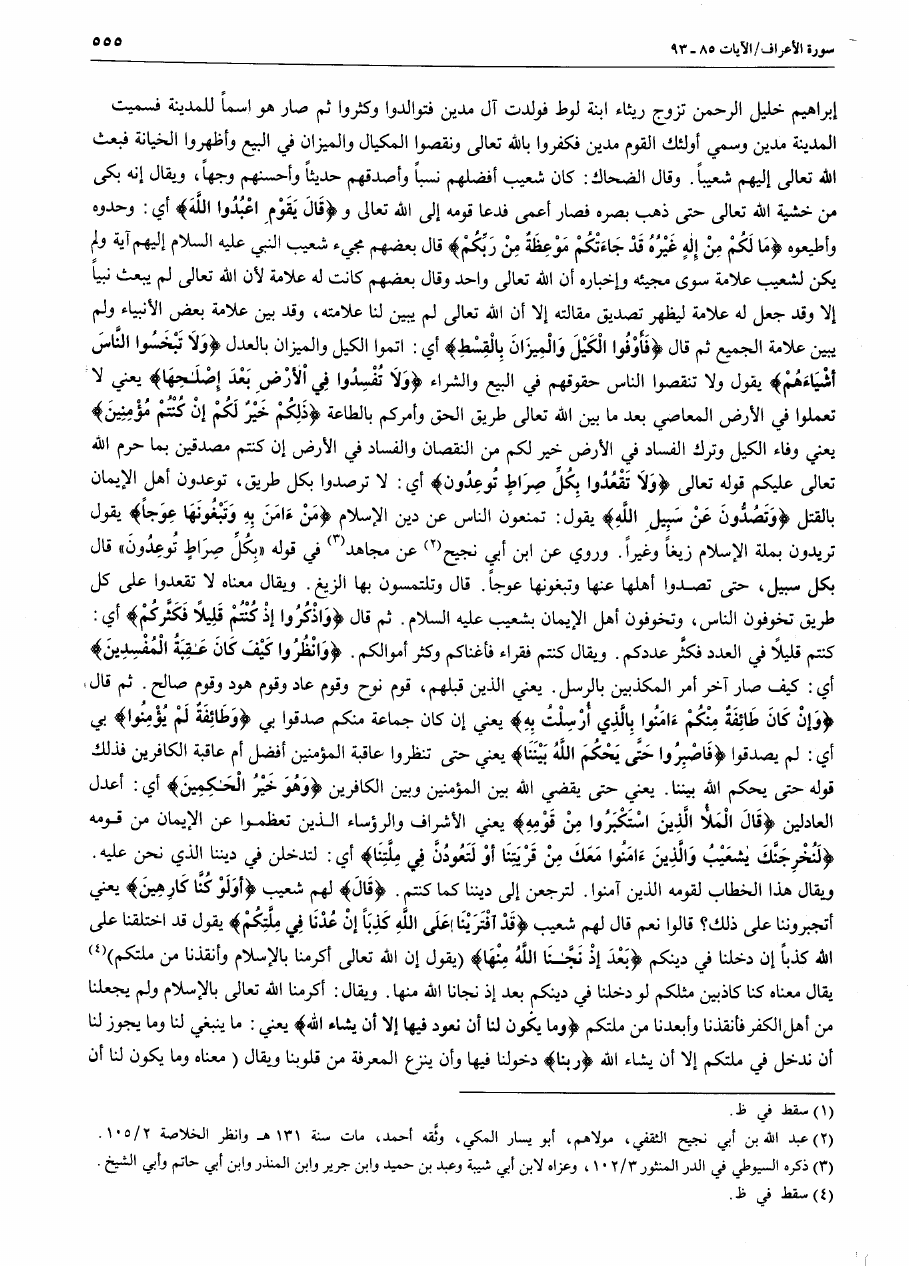 سورة الأعراف/الآيات ٨٥ ـ ٩٣
٥٥٥
إبراهيم خليل الرحمن تزوج ريثاء ابنة لوط فولدت آل مدين فتوالدوا وكثروا ثم صار هو اسماً للمدينة فسميت
المدينة مدين وسمي أولئك القوم مدين فكفروا بالله تعالى ونقصوا المكيال والميزان في البيع وأظهروا الخيانة فبعث
الله تعالى إليهم شعيباً. وقال الضحاك: كان شعيب أفضلهم نسباً وأصدقهم حديثاً وأحسنهم وجهاً، ويقال إنه بكى
من خشية الله تعالى حتى ذهب بصره فصار أعمى فدعا قومه إلى الله تعالى و ﴿قَالَ يَقَوْمِ اعْبُدُوا اللَّهَ﴾ أي: وحدوه
وأطيعوه ﴿مَا لَكُمْ مِنْ إِلٰهٍ غَيْرُهُ قَدْ جَاءَتْكُمْ مَوْعِظَةٌ مِنْ رَبِّكُمْ﴾ قال بعضهم مجيء شعيب النبي عليه السلام إليهم آية ولم
يكن لشعيب علامة سوى مجيئه وإخباره أن الله تعالى واحد وقال بعضهم كانت له علامة لأن الله تعالى لم يبعث نبياً
إلا وقد جعل له علامة ليظهر تصديق مقالته إلا أن الله تعالى لم يبين لنا علامته، وقد بين علامة بعض الأنبياء ولم
يبين علامة الجميع ثم قال ﴿فَأَوْفُوا الْكَيْلَ وَالْمِيزَانَ بِالْقِسْطِ﴾ أي: اتموا الكيل والميزان بالعدل ﴿وَلَا تَبْخَسُوا النَّاسَ
أَشْيَاءَهُمْ﴾ يقول ولا تنقصوا الناس حقوقهم في البيع والشراء ﴿وَلَا تُفْسِدُوا فِي الْأَرْضِ بَعْدَ إِصْلَـٰحِهَا﴾ يعني لا
تعملوا في الأرض المعاصي بعد ما بين الله تعالى طريق الحق وأمركم بالطاعة ﴿ذَلِكُمْ خَيْرٌ لَكُمْ إِنْ كُنْتُمْ مُؤْمِنِينَ﴾
يعني وفاء الكيل وترك الفساد في الأرض خير لكم من النقصان والفساد في الأرض إن كنتم مصدقين بما حرم الله
تعالى عليكم قوله تعالى ﴿وَلَا تَقْعُدُوا بِكُلِّ صِرَاطٍ تُوعِدُون﴾ أي: لا ترصدوا بكل طريق، توعدون أهل الإيمان
بالقتل ﴿وَتَصُدُّونَ عَنْ سَبِيلِ اللَّهِ﴾ يقول: تمنعون الناس عن دين الإسلام ﴿مَنْ ءَامَنَ بِهِ وَتَبْغُونَهَا عِوَجاً﴾ يقول
تريدون بملة الإسلام زيغاً وغيراً. وروي عن ابن أبي نجيح(٢) عن مجاهد(٣) في قوله «بِكُلِّ صِرَاطٍ تُوعِدُونَ» قال
بكل سبيل، حتى تصدوا أهلها عنها وتبغونها عوجاً. قال وتلتمسون بها الزيغ. ويقال معناه لا تقعدوا على كل
طريق تخوفون الناس، وتخوفون أهل الإيمان بشعيب عليه السلام. ثم قال ﴿وَاذْكُرُوا إِذْ كُنْتُمْ قَلِيلًا فَكَثَّرَكُمْ﴾ أي:
كنتم قليلًا في العدد فكثّر عددكم. ويقال كنتم فقراء فأغناكم وكثر أموالكم. ﴿وَانْظُرُوا كَيْفَ كَانَ عَـٰقِبَةُ الْمُفْسِدِينَ﴾
أي: كيف صار آخر أمر المكذبين بالرسل. يعني الذين قبلهم، قوم نوح وقوم عاد وقوم هود وقوم صالح. ثم قال،
﴿وَإِنْ كَانَ طَائِفَةٌ مِنْكُمْ ءَامَنُوا بِالَّذِي أُرْسِلْتُ بِهِ﴾ يعني إن كان جماعة منكم صدقوا بي ﴿وَطَائِفَةٌ لَمْ يُؤْمِنُوا﴾ بي
أي: لم يصدقوا ﴿فَاصْبِرُوا حَتَّى يَحْكُمَ اللَّهُ بَيْنَنَا﴾ يعني حتى تنظروا عاقبة المؤمنين أفضل أم عاقبة الكافرين فذلك
قوله حتى يحكم الله بيننا. يعني حتى يقضي الله بين المؤمنين وبين الكافرين ﴿وَهُوَ خَيْرُ الْحَـٰكِمِينَ﴾ أي: أعدل
العادلين ﴿قَالَ الْمَلَأُ الَّذِينَ اسْتَكْبَرُوا مِنْ قَوْمِهِ﴾ يعني الأشراف والرؤساء الذين تعظموا عن الإيمان من قومه
﴿لَنُخْرِجَنَّكَ يٰشُعَيْبُ وَالَّذِينَ ءَامَنُوا مَعَكَ مِنْ قَرْيَتِنَا أَوْ لَتَعُودُنَّ فِي مِلَّتِنَا﴾ أي: لتدخلن في ديننا الذي نحن عليه.
ويقال هذا الخطاب لقومه الذين آمنوا. لترجعن إلى ديننا كما كنتم. ﴿قَالَ﴾ لهم شعيب ﴿أَوَلَوْ كُنَّا كَارِهِينَ﴾ يعني
أتجبروننا على ذلك؟ قالوا نعم قال لهم شعيب ﴿قَدْ افْتَرَيْنَا عَلَى اللَّهِ كَذِباً إِنْ عُدْنَا فِي مِلَّتِكُمْ﴾ يقول قد اختلقنا على
الله كذباً إن دخلنا في دينكم ﴿بَعْدَ إِذْ نَجَّـٰنَا اللَّهُ مِنْهَا﴾ (يقول إن الله تعالى أكرمنا بالإسلام وأنقذنا من ملتكم)(٤)
يقال معناه كنا كاذبين مثلكم لو دخلنا في دينكم بعد إذ نجانا الله منها. ويقال: أكرمنا الله تعالى بالإسلام ولم يجعلنا
من أهل الكفر فأنقذنا وأبعدنا من ملتكم ﴿وما يكون لنا أن نعود فيها إلا أن يشاء الله﴾ يعني: ما ينبغي لنا وما يجوز لنا
أن ندخل في ملتكم إلا أن يشاء الله ﴿ربنا﴾ دخولنا فيها وأن ينزع المعرفة من قلوبنا ويقال ( معناه وما يكون لنا أن
(١) سقط في ظ.
(٢) عبد الله بن أبي نجيح الثقفي، مولاهم، أبو يسار المكي، وثّقه أحمد، مات سنة ١٣١ هـ وانظر الخلاصة ١٠٥/٢.
(٣) ذكره السيوطي في الدر المنثور ١٠٢/٣، وعزاه لابن أبي شيبة وعبد بن حميد وابن جرير وابن المنذر وابن أبي حاتم وأبي الشيخ.
(٤) سقط في ظ.